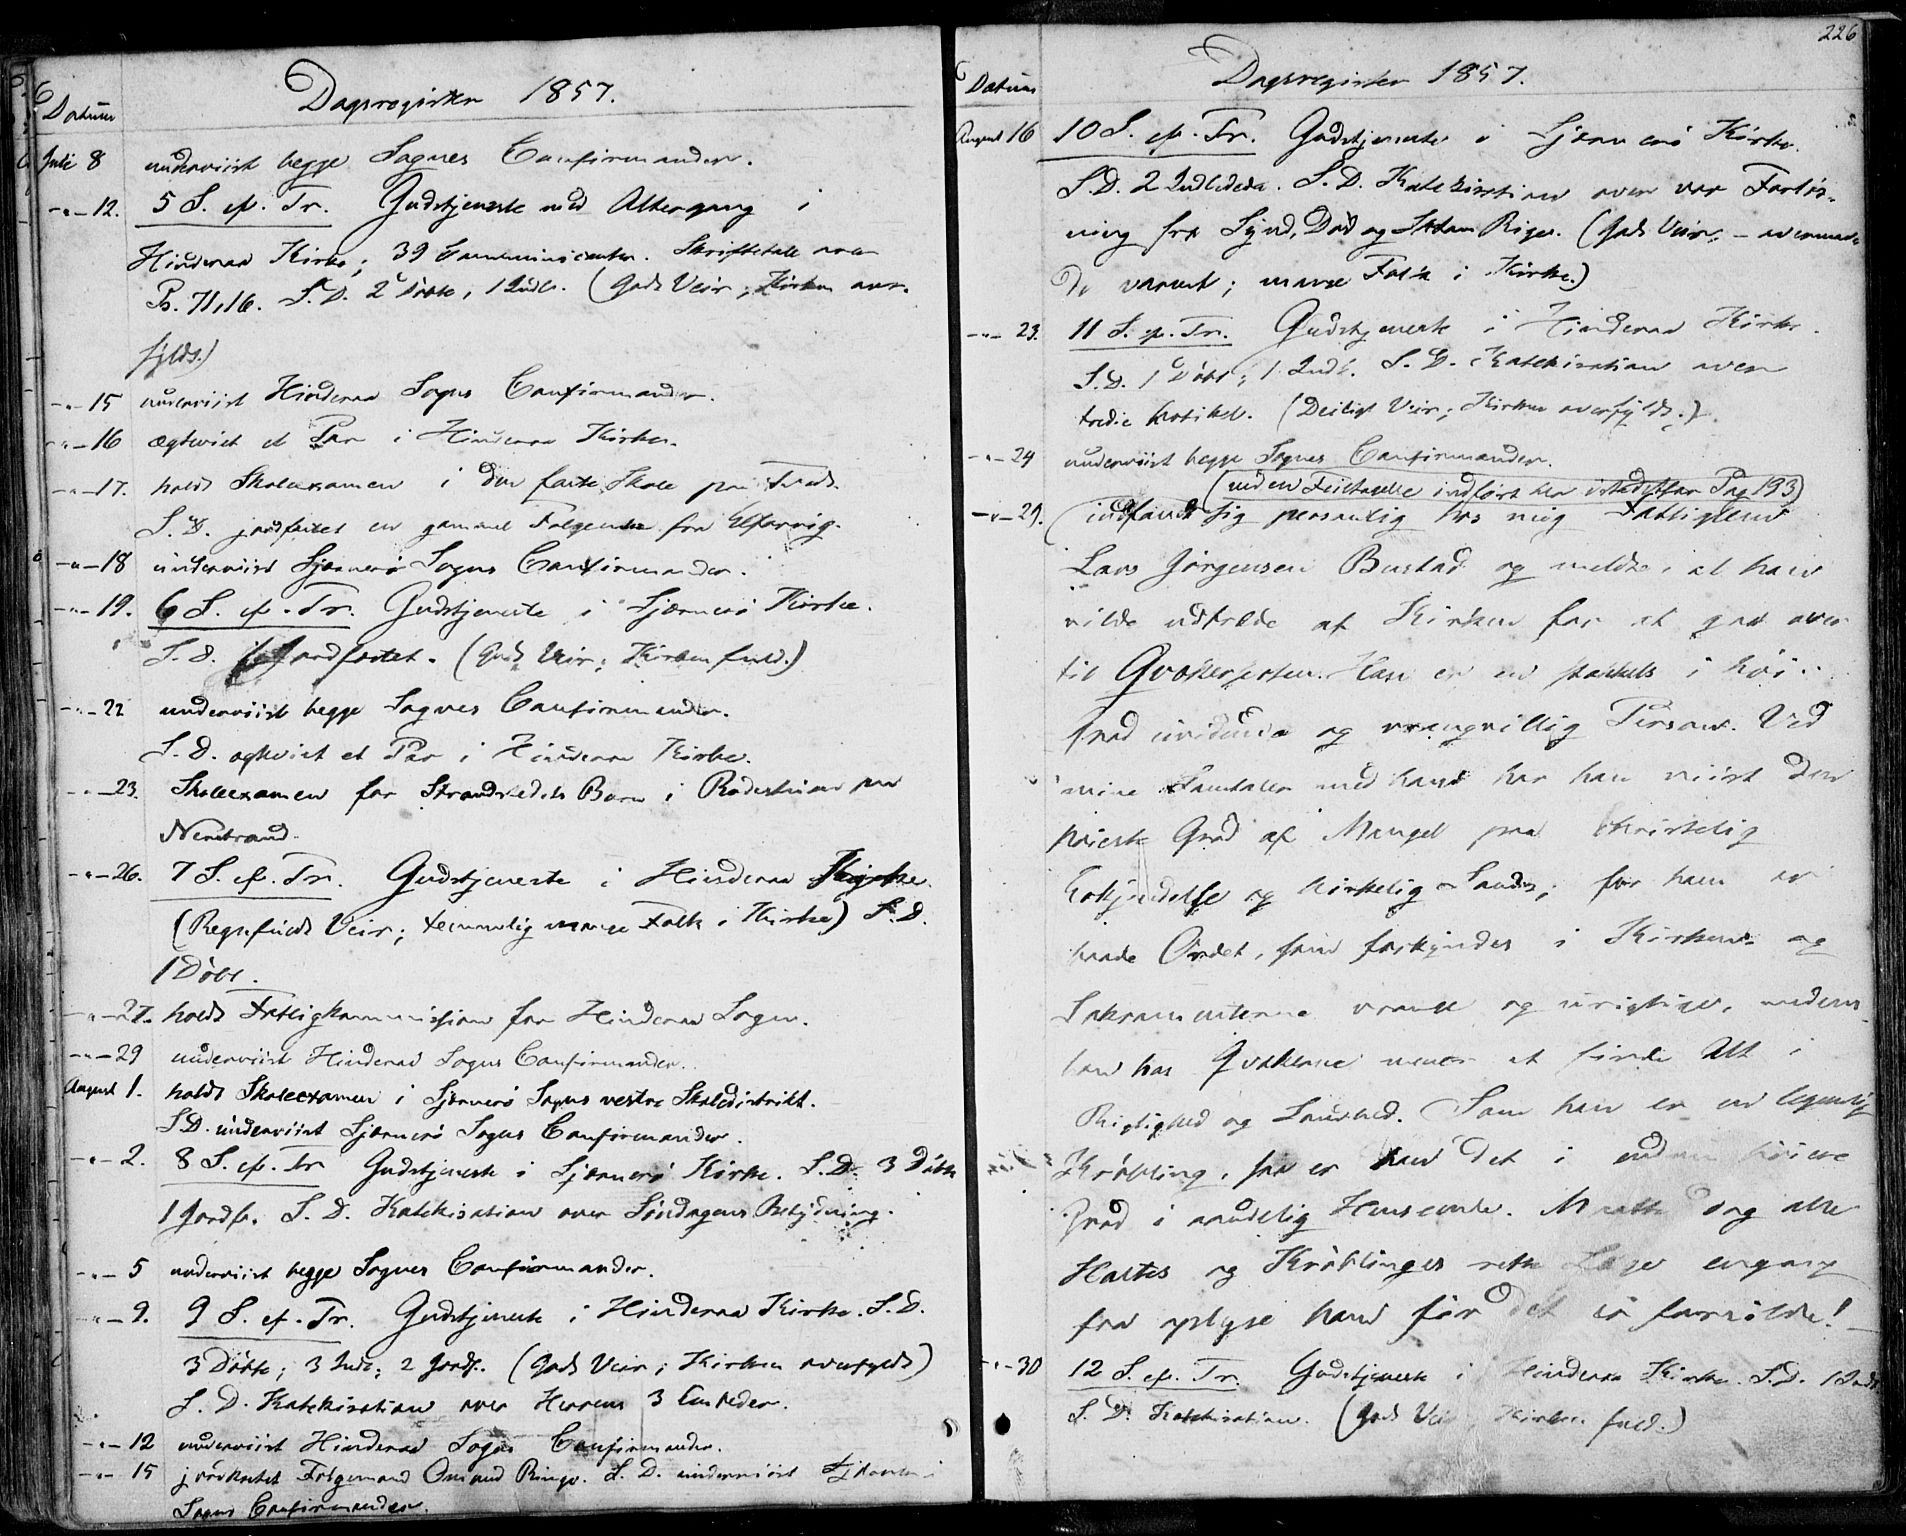 Datum
Dagsregister 1857.
Juli 8 underviist begge Sognes Confirmander.
-"-12. 5 S. ef. Tr. Gudstjeneste med Altergang i
Hinderaa Kirke; 39 Communicanter. Skriftetale over
Ps. 71,16. S. D. 2 Døbte, 1 Indl. (Godt Veir; Kirken over-
fyldt.)
-"-15 underviist Hinderaa Sogns Confirmander.
-"-16 ægteviet et Par i Hinderaa Kirke.
-"-17. holdt Skoleexamen i den faste Skole paa
S. D. jordfæstet en gammel fra
-"-18 underviist Sjærnerø Sogns Confirmander.
-"-19. 6 S. ef. Tr. Gudstjeneste i Sjærnerø Kirke.
S. D. 1 Jordfæstet. (Godt Veir; Kirken fuld.)
-"-22 underviist begge Sognes Confirmander.
S. D. ægteviet et Par i Hinderaa Kirke.
-"-23. Skoleexamen for Strandstedets Børn i paa
Nerstrand.
-"-26. 7 S. ef. Tr. Gudstjeneste i Hinderaa Kirke.
(Regnfuldt Veir; temmelig mange Folk i Kirke) S. D.
1 Døbt.
-"-27. holdt Fattigkommission for Hinderaa Sogn.
-"-29 underviist Hinderaa Sogns Confirmander.
August 1. holdt Skoleexamen i Sjærnerø Sogns vestre Skoledistrikt.
S. D. underviist Sjærnerø Sogns Confirmander.
-"-2. 8 S. ef. Tr Gudstjeneste i Sjærnerø Kirke. S. D. 3 Døbte
1 Jordf. S. D. Katekisation over Søndagens Betydning.
-"-5 underviist begge Sognes Confirmander.
-"-9. 9 S. ef. Tr. Gudstjeneste i Hinderaa Kirke. S. D.
3 Døbte; 3 Indl; 2 Jordf. (Godt Veir; Kirken overfyldt)
S. D. Katekisation over Herrens 3 Embeder.
-"-12 underviist Hinderaa Sogns Confirmander.
-"-15 jordfæstet Omund Ringe. S. D. underviist Sjærnerø
Sogns Confirmander.
226
Datum
Dagsregister 1857.
August 16 10 S. ef. Tr. Gudstjeneste i Sjærnerø Kirke.
S. D. 2 Indledede. S. D. Katekisation over vor Forløs-
ning fra Synd, Død og Satans Rige. (Godt Veir; -
varmt; mange Folk i Kirke.)
-"-23. 11 S. ef. Tr. Gudstjeneste i Hinderaa Kirke.
S. D. 1 Døbt; 1 Indl. S. D. Katekisation over
tredie Artikel. (Deiligt Veir; Kirken overfyldt.)
-"-24 underviist begge Sognes Confirmander.
(ved en Feiltagelse indført her istedetfor Pag 193)
-"-29. indfandt sig personlig hos mig Fattiglem
Lars Jørgensen Bustad og meldte, at han
vilde udtræde af Kirken for at gaa over
til Qvækersekten. Han er en stakkels i høi
Grad uvidende og vrangvillig Person. Ved
mine Samtaler med ham har han viist den
høieste Grad af Mangel paa christelig
Erkjendelse og kirkelig Sands; for ham er
baade Ordet, som forkyndes i Kirken og
Sakramenterne vrange og urigtige, medens
han hos Qvækerne mener at finde Alt i
Rigtighed og Sandhed. Som han er en legemlig
Krøbling, saa er han det i endnu høiere
Grad i aandelig Henseende. Maatte dog alle
Haltes og Krøblinges rette Læge engang
faa oplyse ham før det er forsilde!
-"-30 12 S. ef. Tr. Gudstjeneste i Hinderaa Kirke. S. D. 1 Indl.
S. D. Katekisation. (Godt Veir Kirken fuld.)